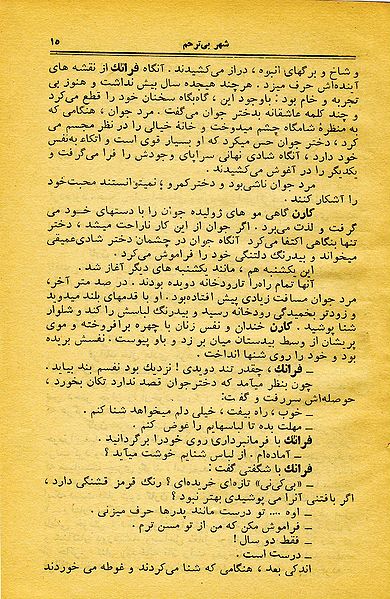 شهر بی‌ترحم ۱۵
و شاخ و برگهای انبوه ، دراز می‌کشیدند . آنگاه فرانك از نقشه های
آینده‌اش حرف میزد . هرچند هیجده سال بیش نداشت و هنوز بی
تجربه و خام بود : باوجود این ، گاه‌بگاه سخنان خود را قطع می‌کرد
و چند کلمه عاشقانه بدختر جوان می‌گفت . مرد جوان ، هنگامی که
به منظرهٔ شامگاه چشم میدوخت و خانهٔ خیالی را در نظر مجسم می
کرد ، دختر جوان حس میکرد که او بسیار قوی است و اتکاء به‌نفس
خود دارد ، آنگاه شادی نهانی سراپای وجودش را فرا می‌گرفت و
یکدیگر را در آغوش می‌کشیدند .
مرد جوان ناشی‌بود و دختر کمرو ؛ نمیتوانستند محبت‌خود
را آشکار کنند .
کارن گاهی مو های ژولیده جوان را با دستهای خود می
گرفت و لذت می‌برد . اگر جوان از این کار ناراحت میشد ، دختر
تنها بنگاهی اکتفا می‌کرد آنگاه جوان در چشمان دختر شادی‌عمیقی
میخواند و بیدرنگ دلتنگی خود را فراموش می‌کرد .
این یکشنبه هم ، مانند یکشنبه های دیگر آغاز شد .
آنها تمام راه‌را تارودخانه دویده بودند . در صد متر آخر،
مرد جوان مسافت زیادی پیش افتاده‌بود . او با قدمهای بلند میدوید
و زودتر بخمیدگی رودخانه رسید و بیدرنگ لباسش را کند و شلوار
شنا پوشید . کارن خندان و نفس زنان با چهره برافروخته و موی
پریشان از وسط بیدستان میان بر زد و باو پیوست . نفسش بریده
بود و خود را روی شنها انداخت .
ــ فرانك ، چقدر تند دویدی ! نزدیك بود نفسم بند بیاید .
چون بنظر میآمد که دخترجوان قصد ندارد تکان بخورد ،
حوصله‌اش سررفت و گفت :
ــ خوب ، راه بیفت ، خیلی دلم میخواهد شنا کنم .
ــ مهلت بده تا لباسهایم را عوض کنم .
فرانك با فرمانبرداری روی خودرا برگردانید .
ــ آماده‌ام . از لباس شنایم خوشت میآید ؟
فرانك با شگفتی گفت :
ــ «بی‌کی‌نی» تازه‌ای خریده‌ای ؟ رنگ قرمز قشنگی دارد ،
اگر بافتنی آنرا می پوشیدی بهتر نبود ؟
ــ اوه .... تو درست مانند پدرها حرف میزنی .
ــ فراموش مکن که من از تو مسن ترم .
ــ فقط دو سال !
ــ درست است .
اندکی بعد ، هنگامی که شنا می‌کردند و غوطه می خوردند